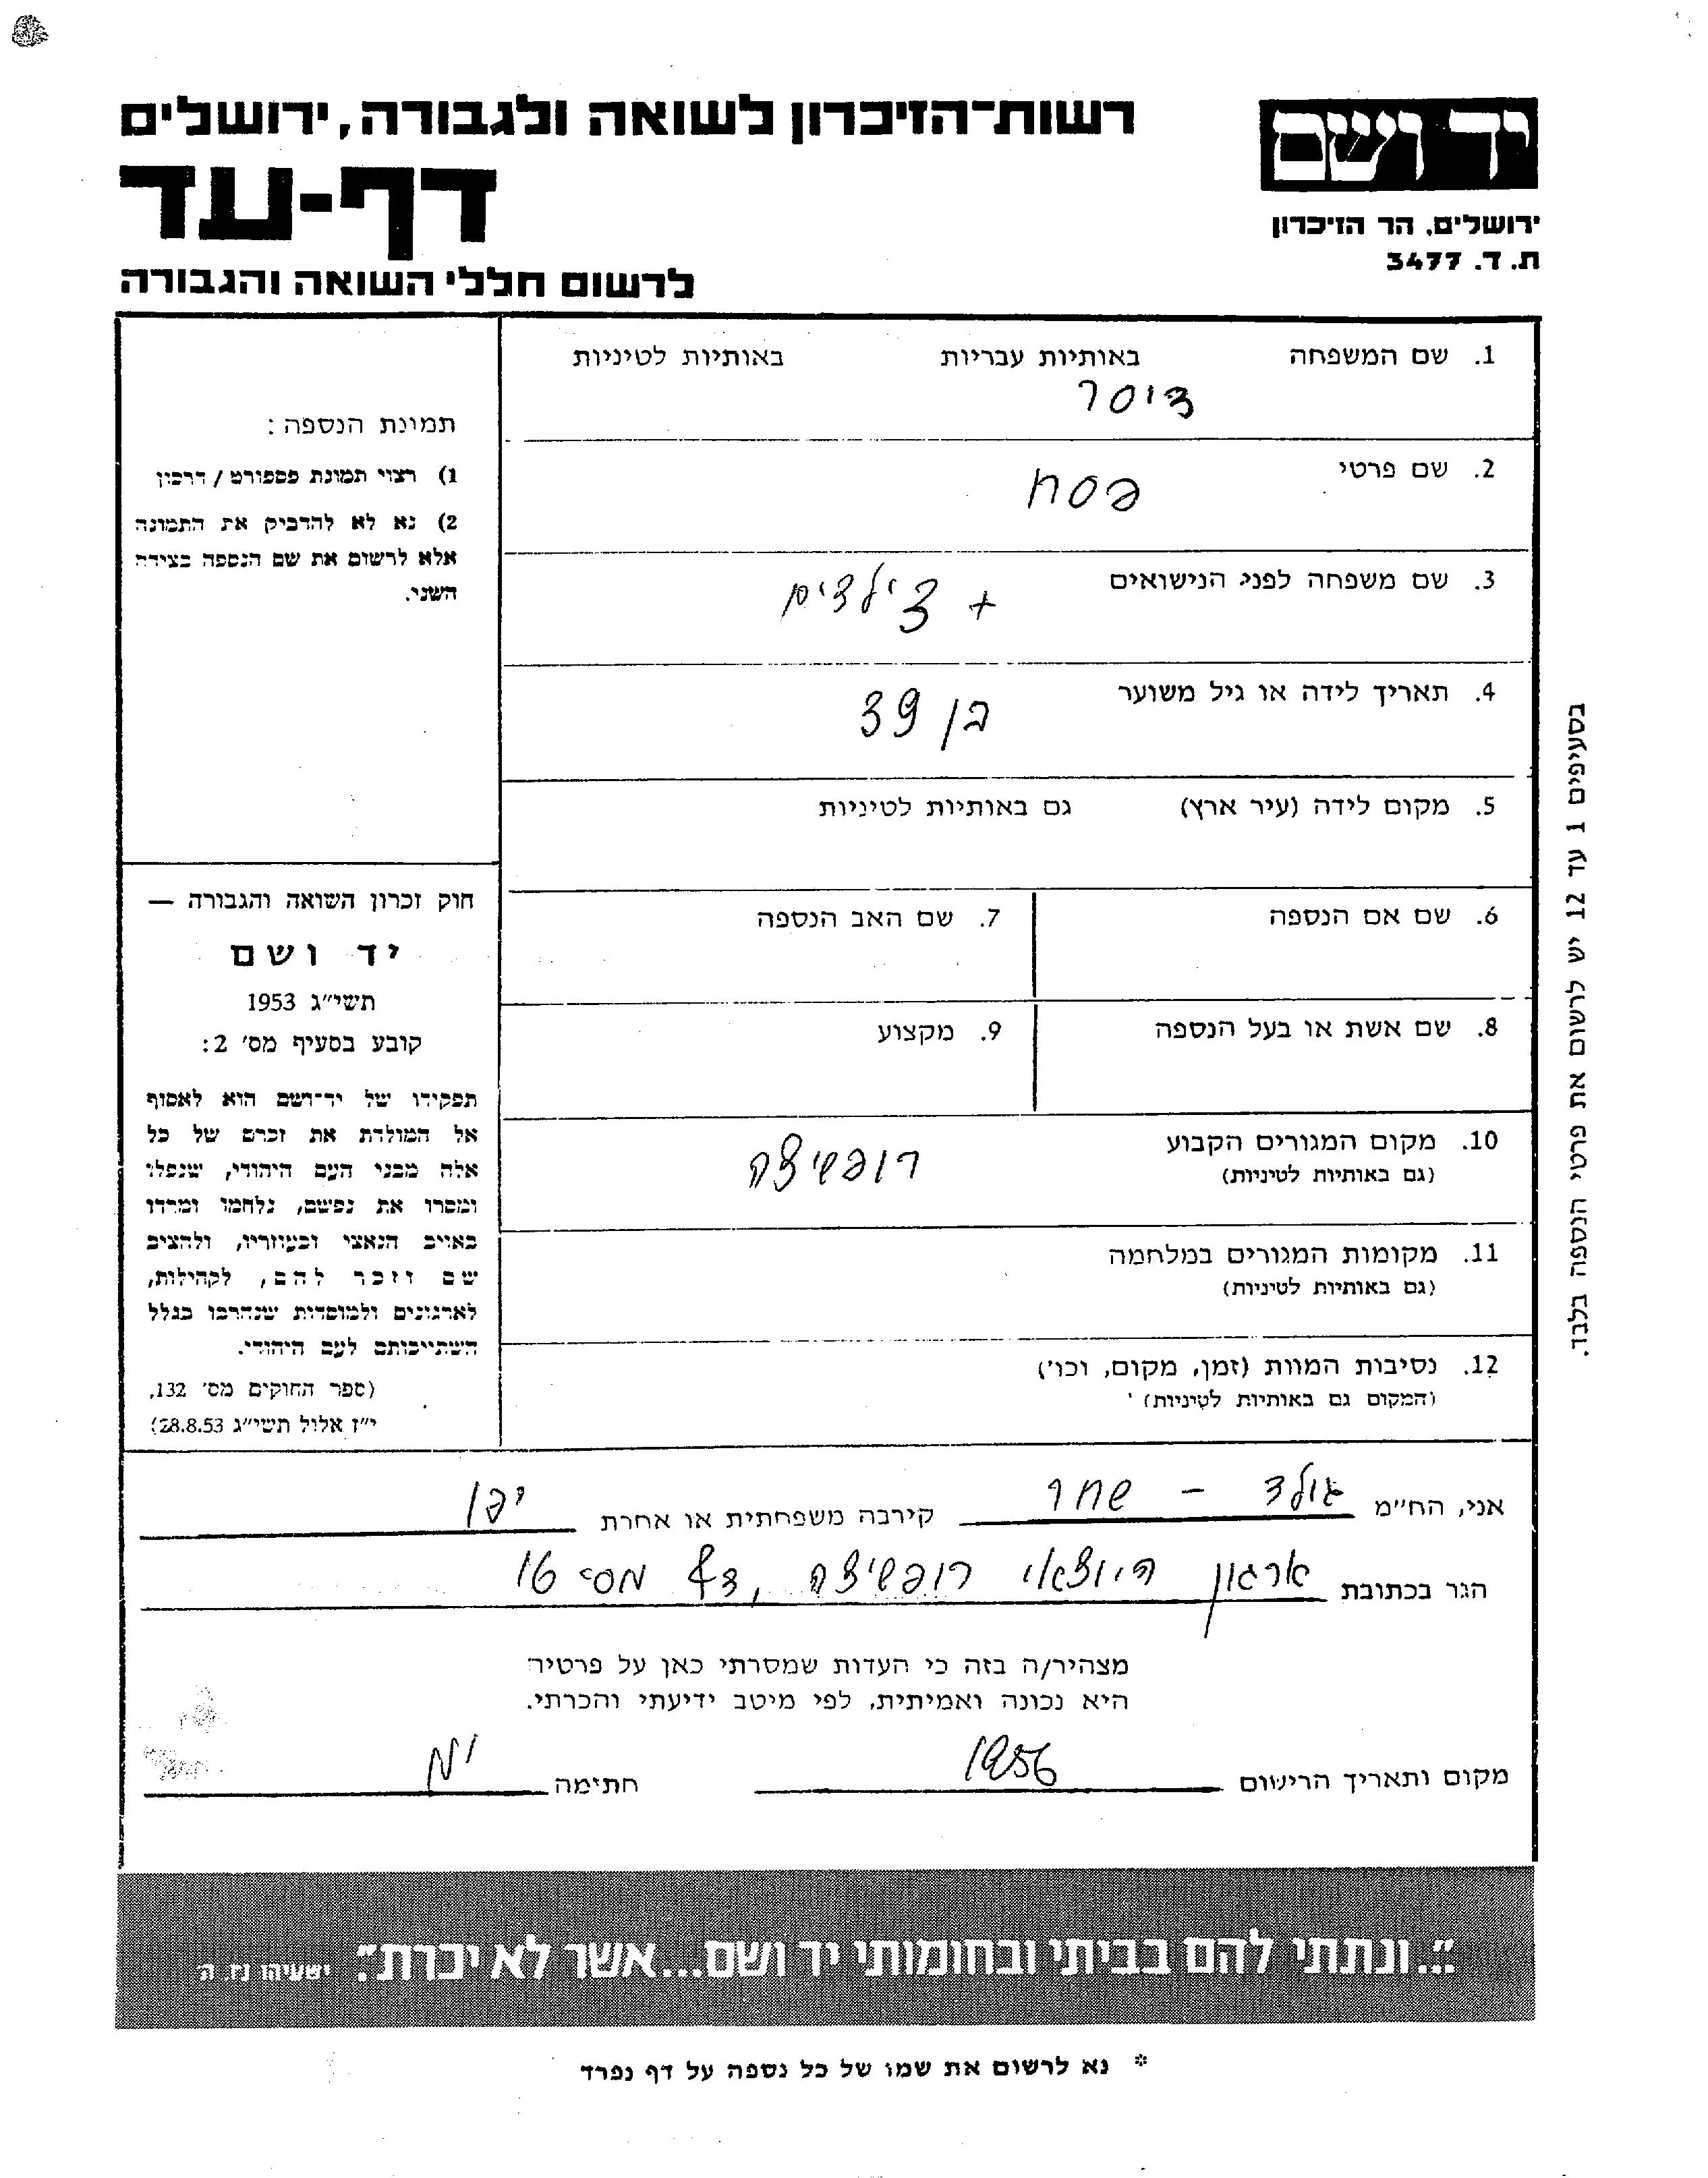 רשות־הזיכרון לשואה ולגבורה, ירושלים
דף-עד
לרשום חללי השואה והגבורה
יד ושם
ירושלים, הר הזיכרון
ת.ד. 3477
1. שם המשפחה באותיות עבריות באותיות לטיניות
ציסר
2. שם פרטי
פסח
3. שם משפחה לפני הנישואים
+ 3 ילדים
4. תאריך לידה או גיל משוער
בן 39
5. מקום לידה (עיר ארץ) גם באותיות לטיניות
6. שם אם הנספה
7. שם האב הנספה
8. שם אשת או בעל הנספה
9. מקצוע
10. מקום המגורים הקבוע
(גם באותיות לטיניות)
רופשיצה
11. מקומות המגורים במלחמה
(גם באותיות לטיניות)
12. נסיבות המוות (זמן, מקום, וכו')
(המקום גם באותיות לטיניות)
תמונת הנספה:
1) רצוי תמונת פספורט / דרכון
2) נא לא להדביק את התמונה
אלא לרשום את שם הנספה בצידה
השני.
חוק זכרון השואה והגבורה —
יד ושם
תשי״ג 1953
קובע בסעיף מס׳ 2:
תפקידו של יד־ושם הוא לאסוף
אל המולדת את זכרם של כל
אלה מבני העם היהודי, שנפלו
ומסרו את נפשם, נלחמו ומרדו
באויב הנאצי ובעוזריו, ולהציב
שם וזכר להם, לקהילות,
לארגונים ולמוסדות שנחרבו בגלל
השתייכותם לעם היהודי.
(ספר החוקים מס׳ 132,
י״ז אלול תשי״ג 28.8.53)
בסעיפים 1 עד 12 יש לרשום את פרטי הנספה בלבד.
אני, הח״מ גולד - שחר קירבה משפחתית או אחרת
הגר בכתובת ארגון היוצאי רופשיצה, דף מס׳ 16
מצהיר/ה בזה כי העדות שמסרתי כאן על פרטיה
היא נכונה ואמיתית, לפי מיטב ידיעתי והכרתי.
מקום ותאריך הרישום 1956 חתימה
״...ונתתי להם בביתי ובחומותי יד ושם...אשר לא יכרת״. ישעיהו נו, ה
* נא לרשום את שמו של כל נספה על דף נפרד